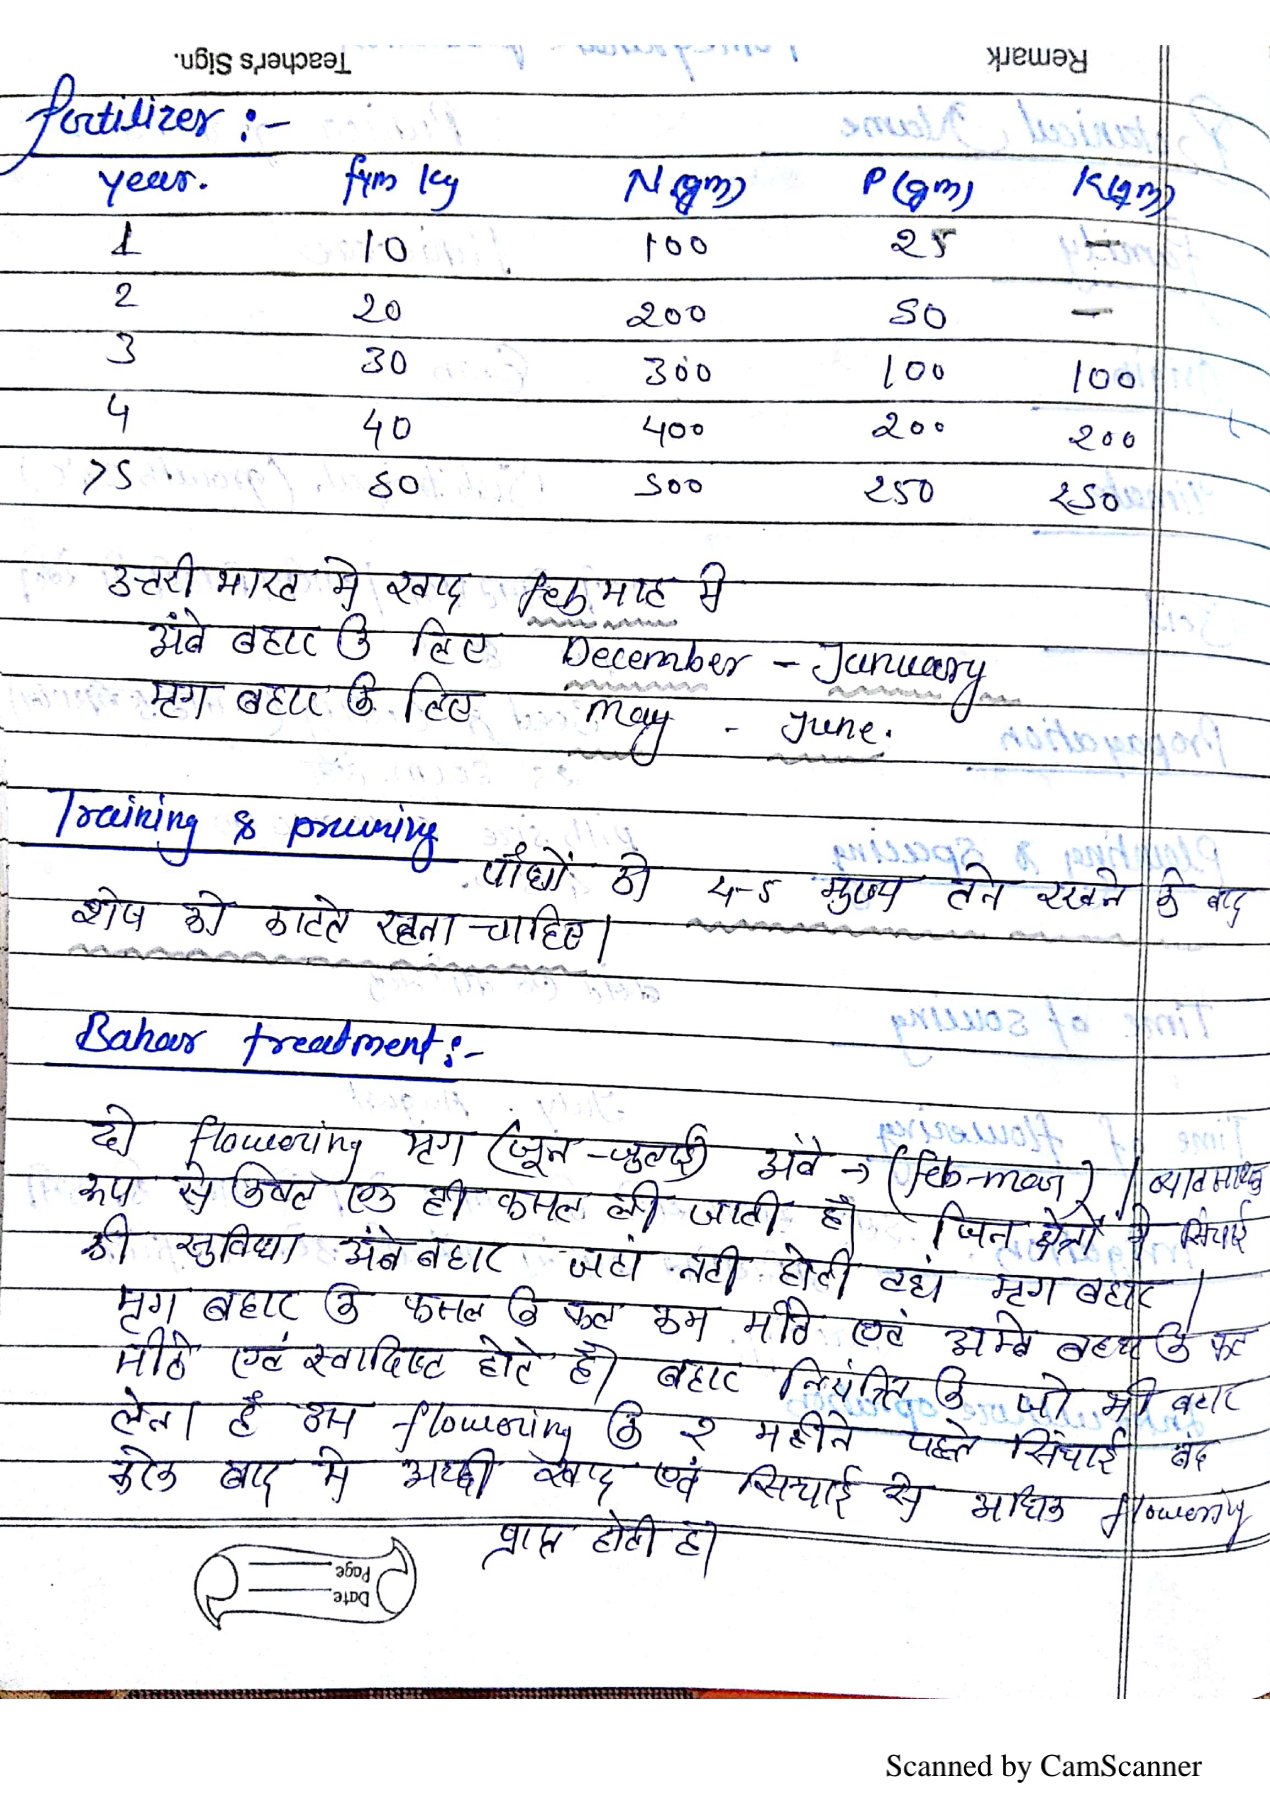 Remark Teacher's Sign.
fertilizer :-
year. fym kg N(gm) P(gm) K(gm)
1 10 100 25 -
2 20 200 50 -
3 30 300 100 100
4 40 400 200 200
>5 50 500 250 250
उत्तरी भारत मे खाद feb माह मे
अंबे बहार के लिए December - January
मृग बहार के लिए May - June.
Training & pruning
पौधों को 4-5 मुख्य तने रखने के बाद
शेष को काटते रहना चाहिए।
Bahar treatment :-
दो flowering मृग (जून-जुलाई) अंबे → (feb-mar) । व्यावसायिक
रूप से केवल एक ही फसल ली जाती है। जिन क्षेत्रों मे सिंचाई
की सुविधा अंबे बहार जहां नही होती वहां मृग बहार।
मृग बहार के फसल के फल कम मीठे एवं अम्बे बहार के फल
मीठे एवं स्वादिष्ट होते है। बहार नियंत्रित के जो भी बहार
लेना है उस flowering के २ महीने पहले सिंचाई बंद
करके बाद मे अच्छी खाद एवं सिंचाई से अधिक flowering
प्राप्त होती है।
Page
Date
Scanned by CamScanner